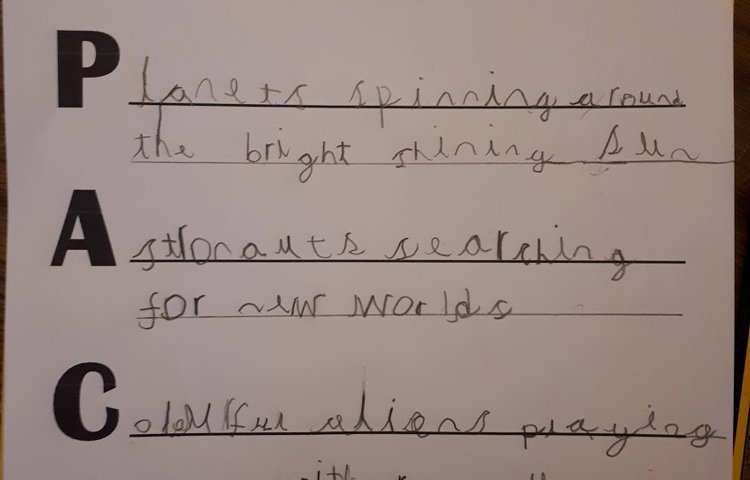 Planets spinning around
the bright shining sun
Astronauts searching
for new worlds
Colourful aliens playing